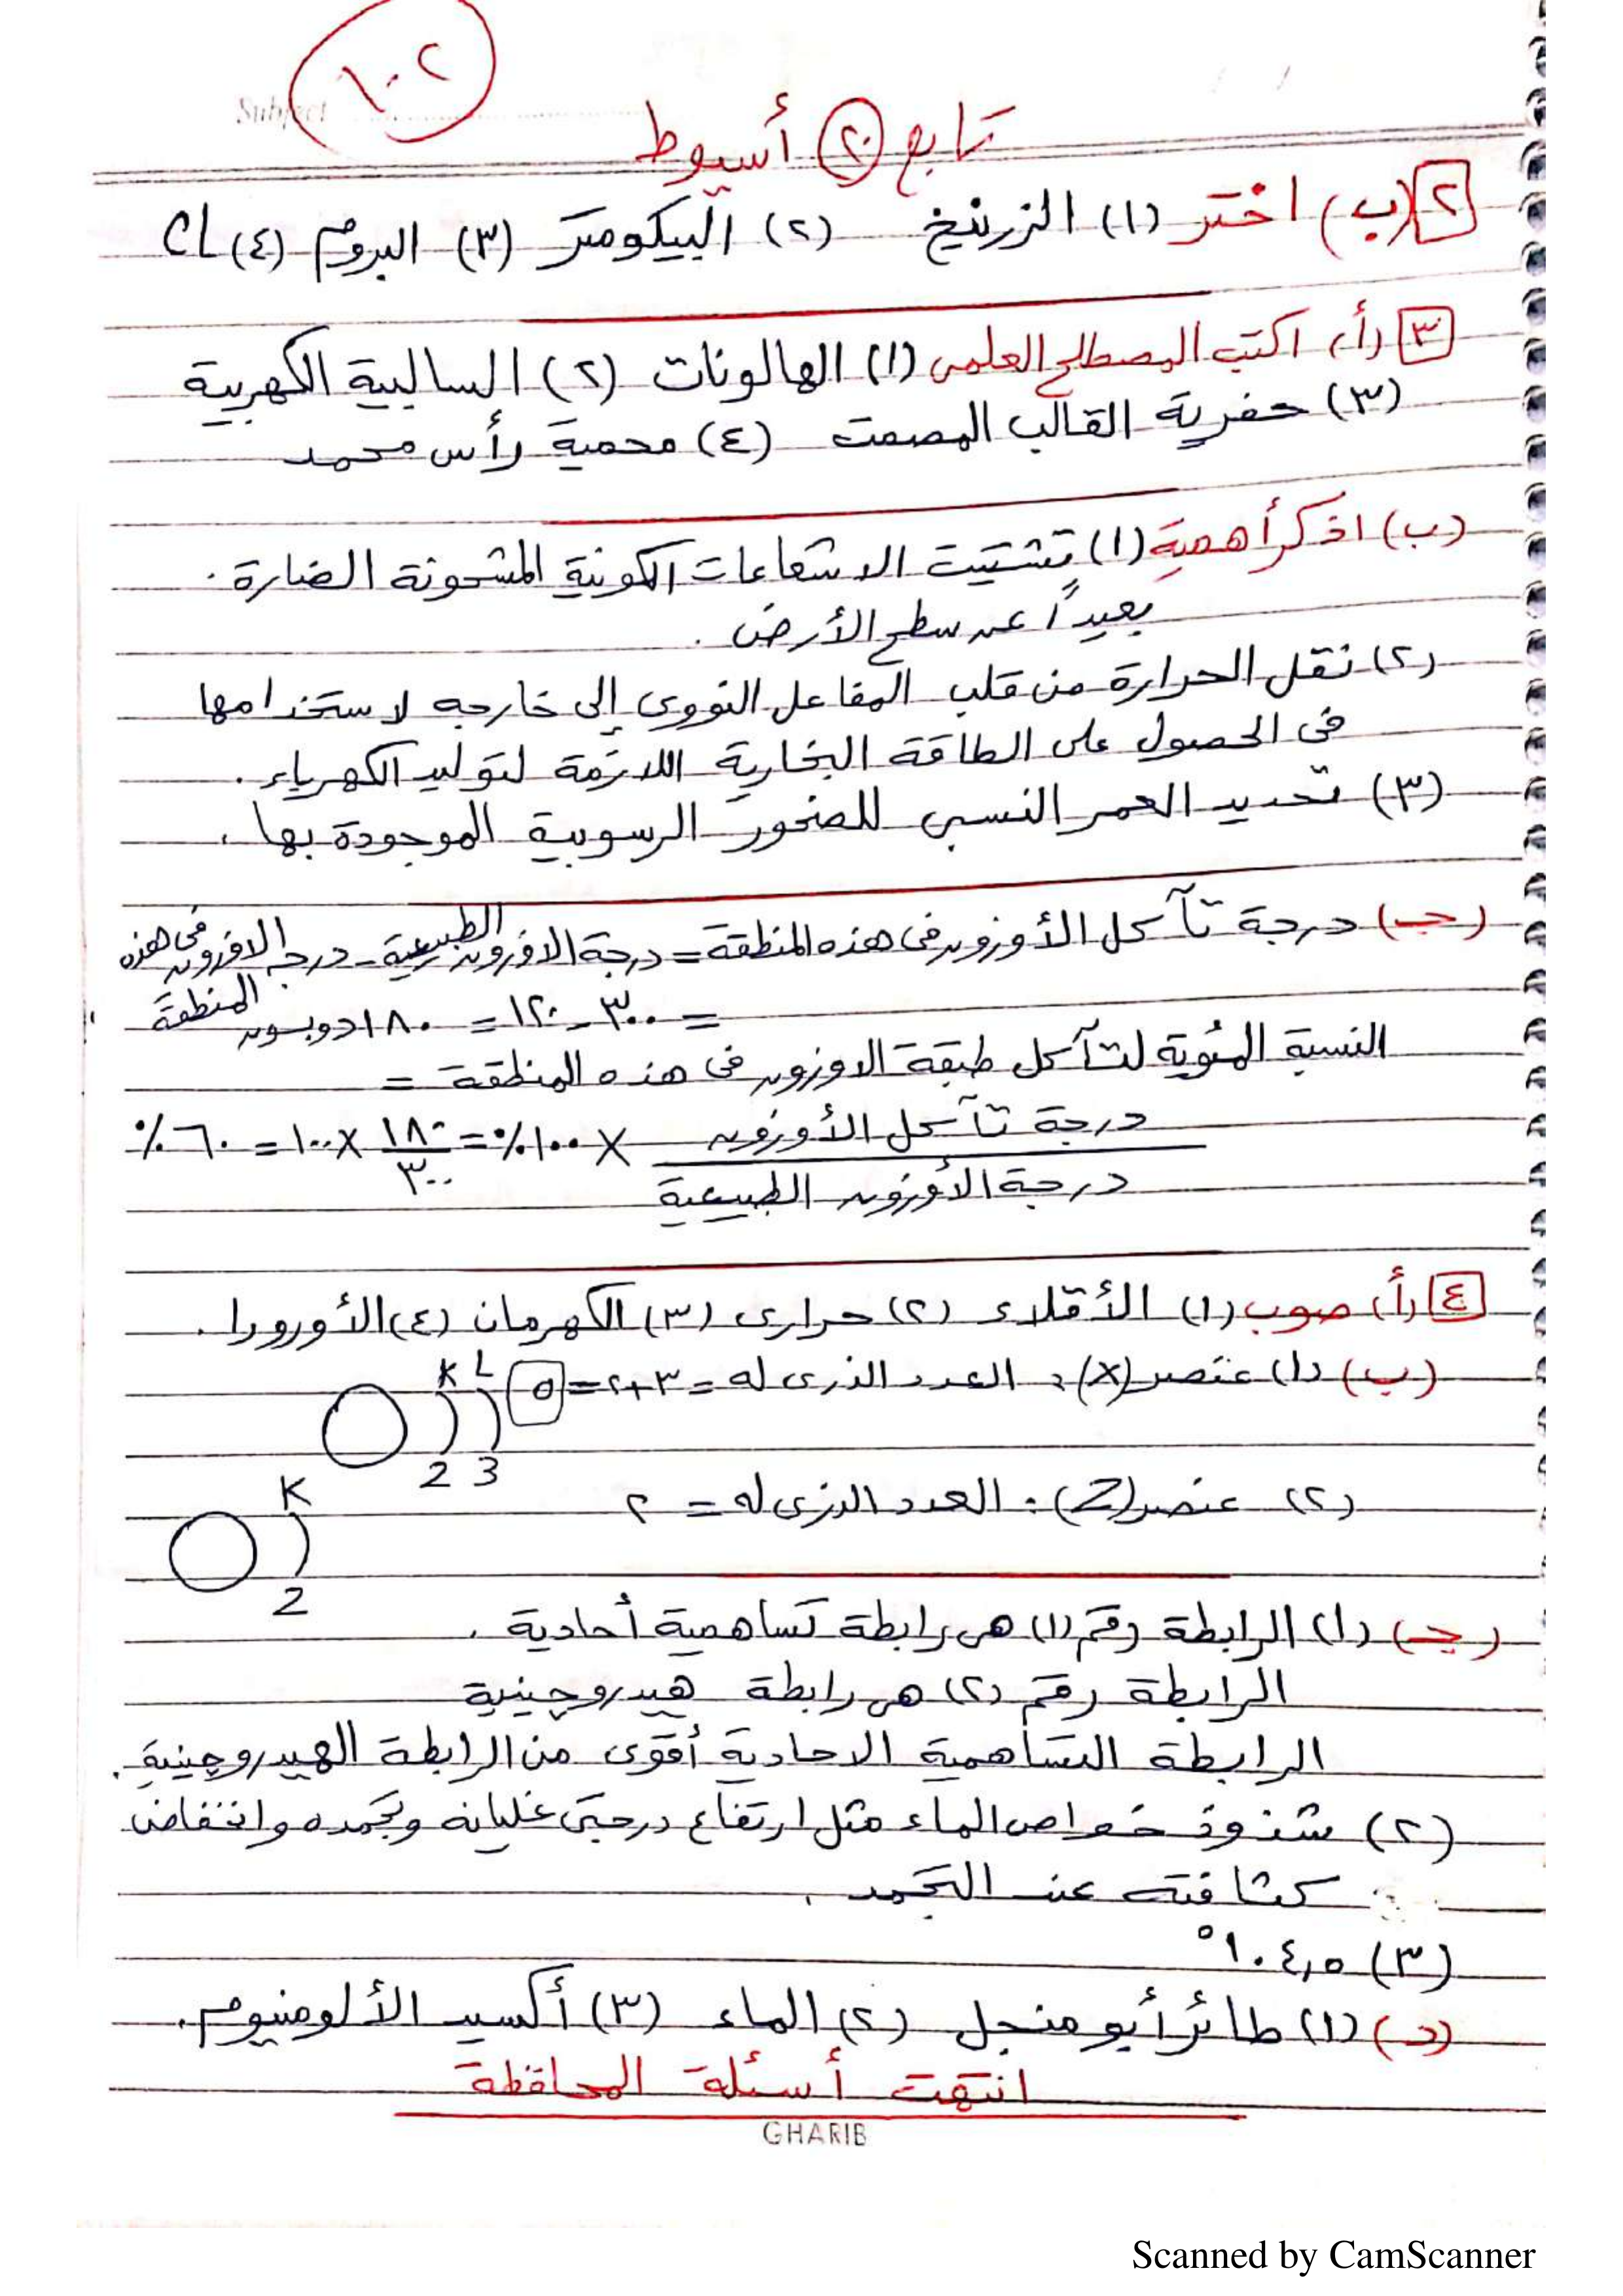 ١٠٢
Subject
تابع ٢٠ أسيوط
٢ (ب) اختر (١) الزرنيخ (٢) البيكومتر (٣) البروم (٤) CL
٣ (أ) اكتب المصطلح العلمى (١) الهالونات (٢) السالبية الكهربية
(٣) حفرية القالب المصمت (٤) محمية رأس محمد
(ب) اذكر أهمية (١) تشتيت الاشعاعات الكونية المشحونة الضارة .
بعيداً عن سطح الأرض .
(٢) نقل الحرارة من قلب المفاعل النووى إلى خارجه لاستخدامها
فى الحصول على الطاقة البخارية اللازمة لتوليد الكهرباء .
(٣) تحديد العمر النسبى للصخور الرسوبية الموجودة بها .
(جـ) درجة تآكل الأوزون فى هذه المنطقة = درجة الاوزون الطبيعية - درجة الاوزون فى هذه المنطقة
= ٣٠٠ - ١٢٠ = ١٨٠ دوبسون
النسبة المئوية لتآكل طبقة الاوزون فى هذه المنطقة =
درجة تآكل الأوزون × ١٠٠٪ = ١٨٠ × ١٠٠ = ٦٠٪
درجة الأوزون الطبيعية ٣٠٠
٤ (أ) صوب (١) الأقلاء (٢) حرارى (٣) الكهرمان (٤) الأورورا .
(ب) (١) عنصر (X) : العدد الذرى له = ٣+٢ = ٥
K L
2 3
(٢) عنصر (Z) : العدد الذرى له = ٢
K
2
(جـ) (١) الرابطة رقم (١) هى رابطة تساهمية أحادية .
الرابطة رقم (٢) هى رابطة هيدروجينية
الرابطة التساهمية الاحادية أقوى من الرابطة الهيدروجينية .
(٢) شذوذ خواص الماء مثل ارتفاع درجتى غليانه وتجمده وانخفاض
كثافته عند التجمد .
(٣) ١٠٤,٥°
(د) (١) طائر أبو منجل (٢) الماء (٣) أكسيد الألومنيوم .
انتهت أسئلة المحافظة
GHARIB
Scanned by CamScanner